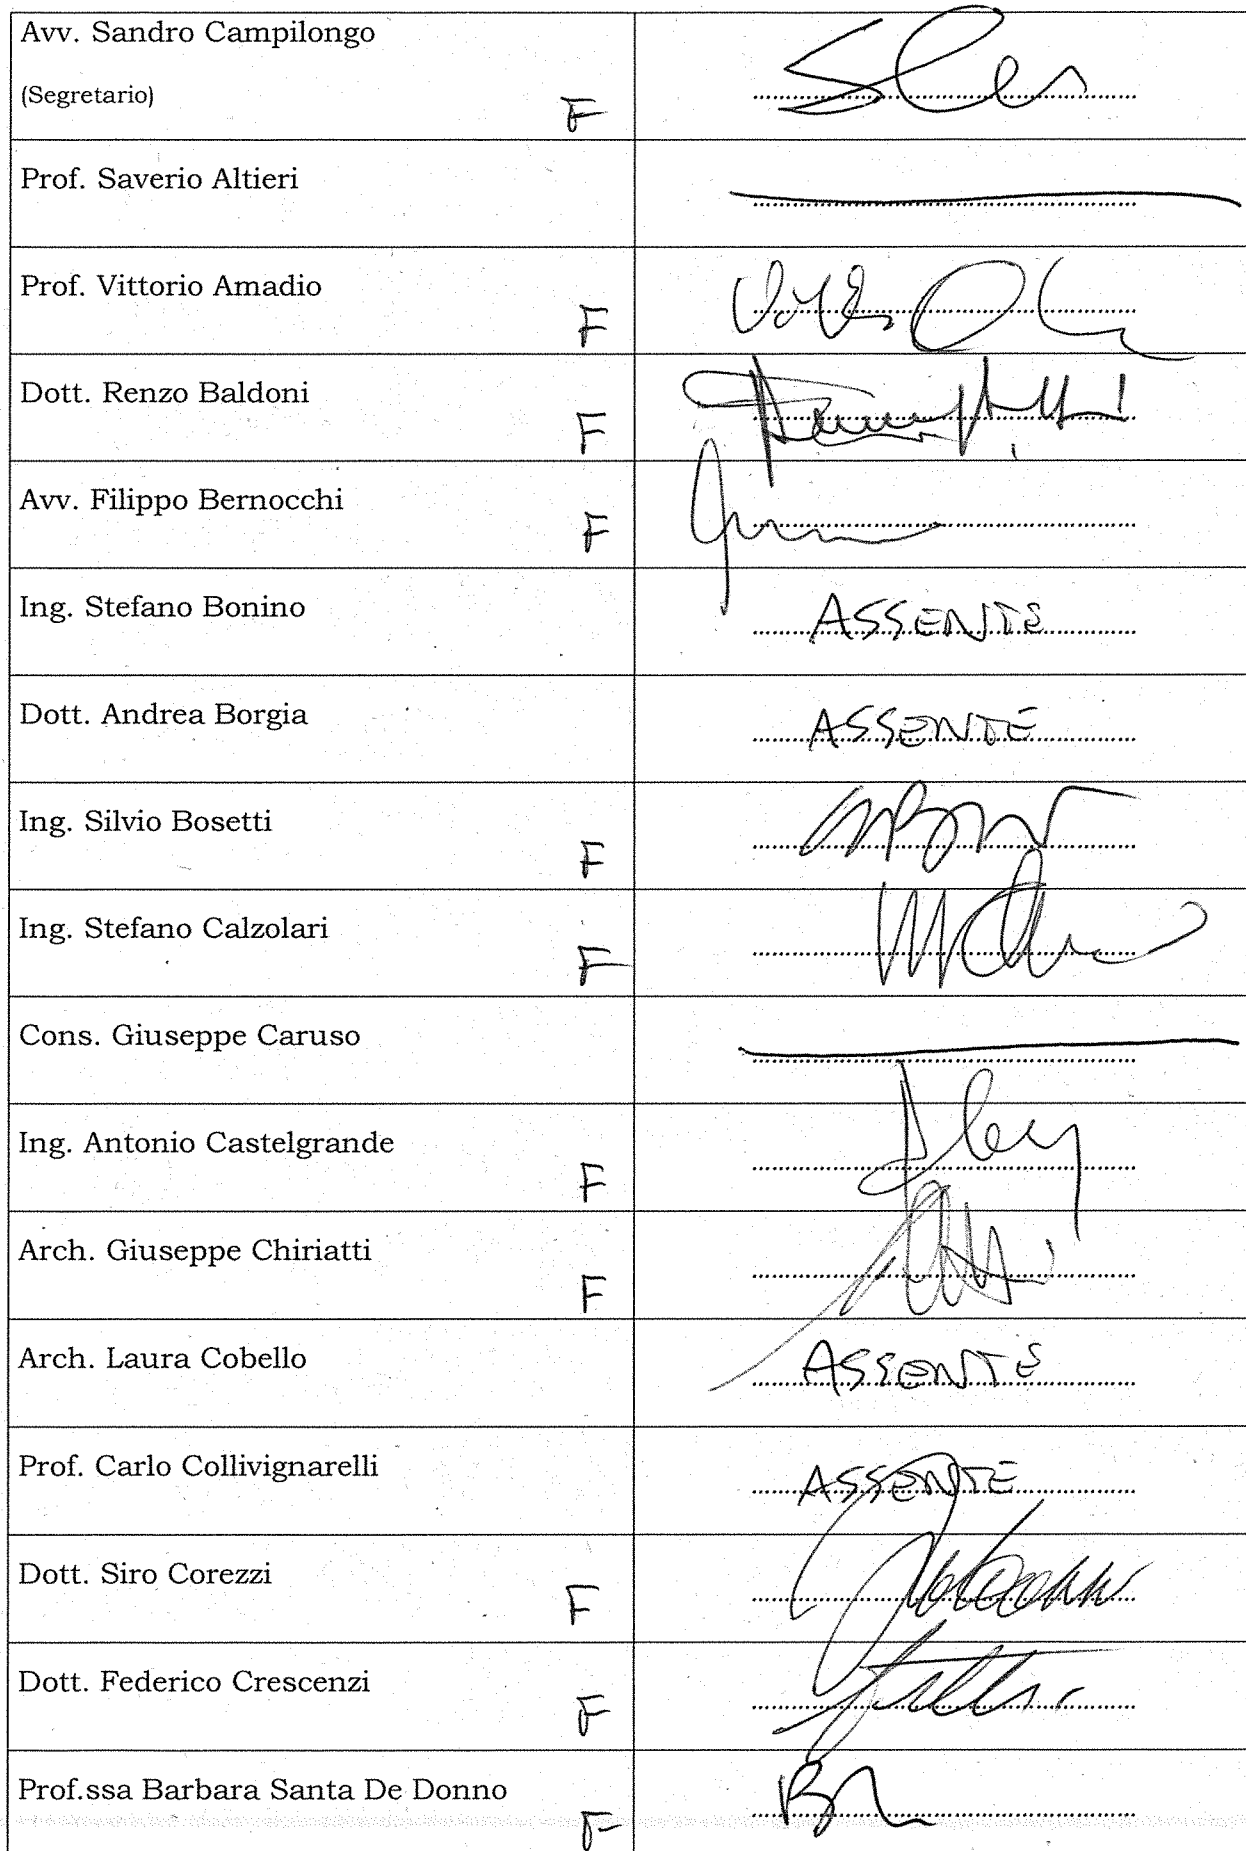 Avv. Sandro Campilongo
(Segretario)
F
Prof. Saverio Altieri
Prof. Vittorio Amadio
F
Dott. Renzo Baldoni
F
Avv. Filippo Bernocchi
F
Ing. Stefano Bonino
ASSENTE
Dott. Andrea Borgia
ASSENTE
Ing. Silvio Bosetti
F
Ing. Stefano Calzolari
F
Cons. Giuseppe Caruso
Ing. Antonio Castelgrande
F
Arch. Giuseppe Chiriatti
F
Arch. Laura Cobello
ASSENTE
Prof. Carlo Collivignarelli
ASSENTE
Dott. Siro Corezzi
F
Dott. Federico Crescenzi
F
Prof.ssa Barbara Santa De Donno
F